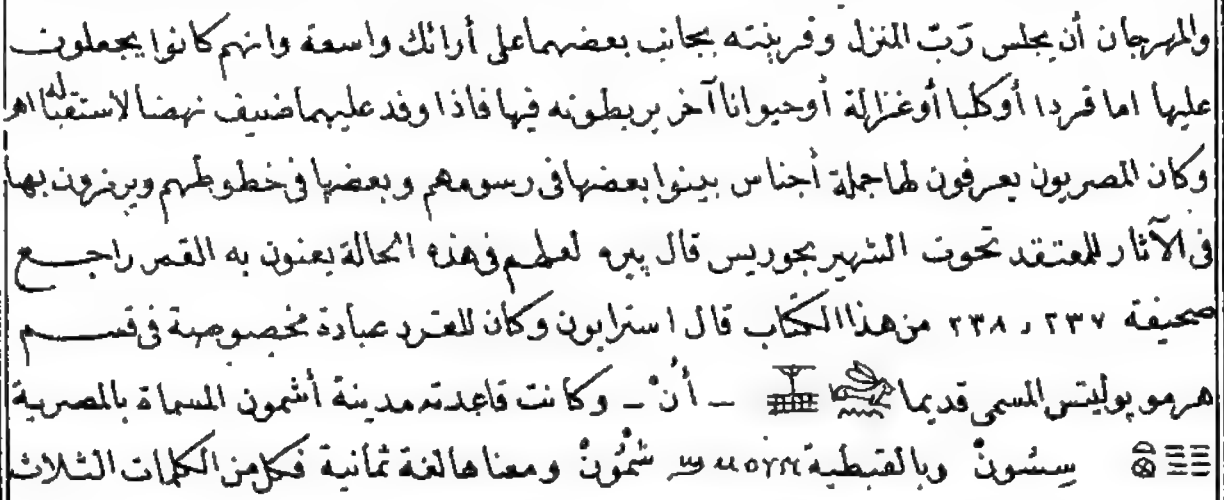 والمهرجان أن يجلس رَبّ المنزل وقرينته بجانب بعضهما على أرائك واسعة وانهم كانوا يجعلون
عليها اما قردا أوكلبا أوغزالة أوحيوانا آخر يربطونه فيها فاذا وفد عليهما ضيف نهضا لاستقباله اﻫ
وكان المصريون يعرفون لها جملة أجناس بينوا بعضها فى رسومهم وبعضها فى خطوطهم ويرمزون بها
فى الآثار للمعتقد تحوت الشهير بجوريس قال بيره لعلهم فى هذه الحالة يعنون به القمر راجع
صحيفة ٢٣٧ و ٢٣٨ من هذا الكتاب قال استرابون وكان للقرد عبادة مخصوصية فى قسم
هرموبوليتس المسمى قديما – أُنْ – وكانت قاعدته مدينة أشمون المسماة بالمصرية
سِسُونْ وبالقبطية ϣⲙⲟⲩⲛ شْمُونْ ومعناها لغة ثمانية فكل من الكلمات الثلاث